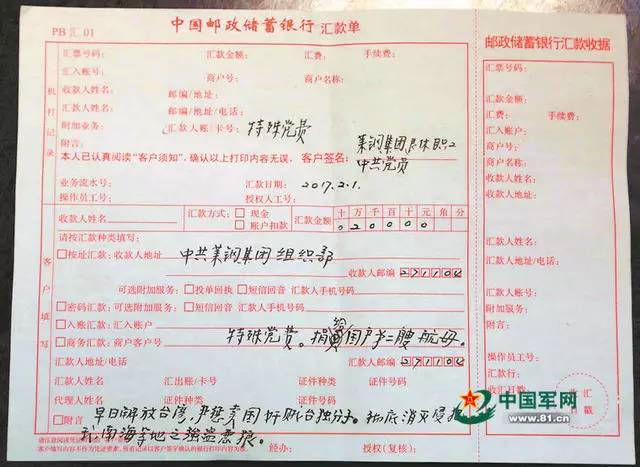 PB汇 01
中国邮政储蓄银行 汇款单
汇票号码: 汇款金额: 汇费: 手续费:
汇入账号: 商户号: 商户名称:
收款人姓名: 邮编/地址:
汇款人姓名: 邮编/地址/电话:
附加业务: 汇款人账/卡号: 特殊党费
附言: 莱钢集团退休职工
本人已认真阅读“客户须知”,确认以上打印内容无误。 客户签名: 中共党员
业务流水号: 汇款日期: 2017.2.1.
操作员工号: 授权人工号:
机打记录
收款人姓名 汇款方式: 现金 账户扣款 汇款金额 十万千百十元角分
020000
请按汇款种类填写:
按址汇款: 收款人地址 中共莱钢集团组织部
收款人邮编 271104
可选附加服务: 投单回执 短信回音 汇款人手机号码
密码汇款: 可选附加服务: 短信回音 汇款人手机号码
入账汇款: 汇入账户
商务汇款: 商户客户号 特殊党费。捐给国产第二艘航母。
汇款人地址/电话 汇款人邮编 271104
汇款人姓名 汇出账/卡号 证件种类 证件号码
代理人姓名 证件种类 证件号码
附言 早日解放台湾,严惩卖国奸贼台独分子。彻底消灭侵犯
我南海等地之强盗恶狼。
经办: 授权(复核):
客户填写
邮政储蓄银行汇款收据
汇票号码:
汇款金额:
汇费: 手续费:
汇入账户:
商户号:
商户名称:
收款人姓名:
收款人地址:
汇款人姓名:
汇款人地址/电话:
汇款人账号:
汇款日期:
业务流水号:
附言:
操作员工号:
汇款行:
收汇日期:
收汇日戳
中国军网
www.81.cn